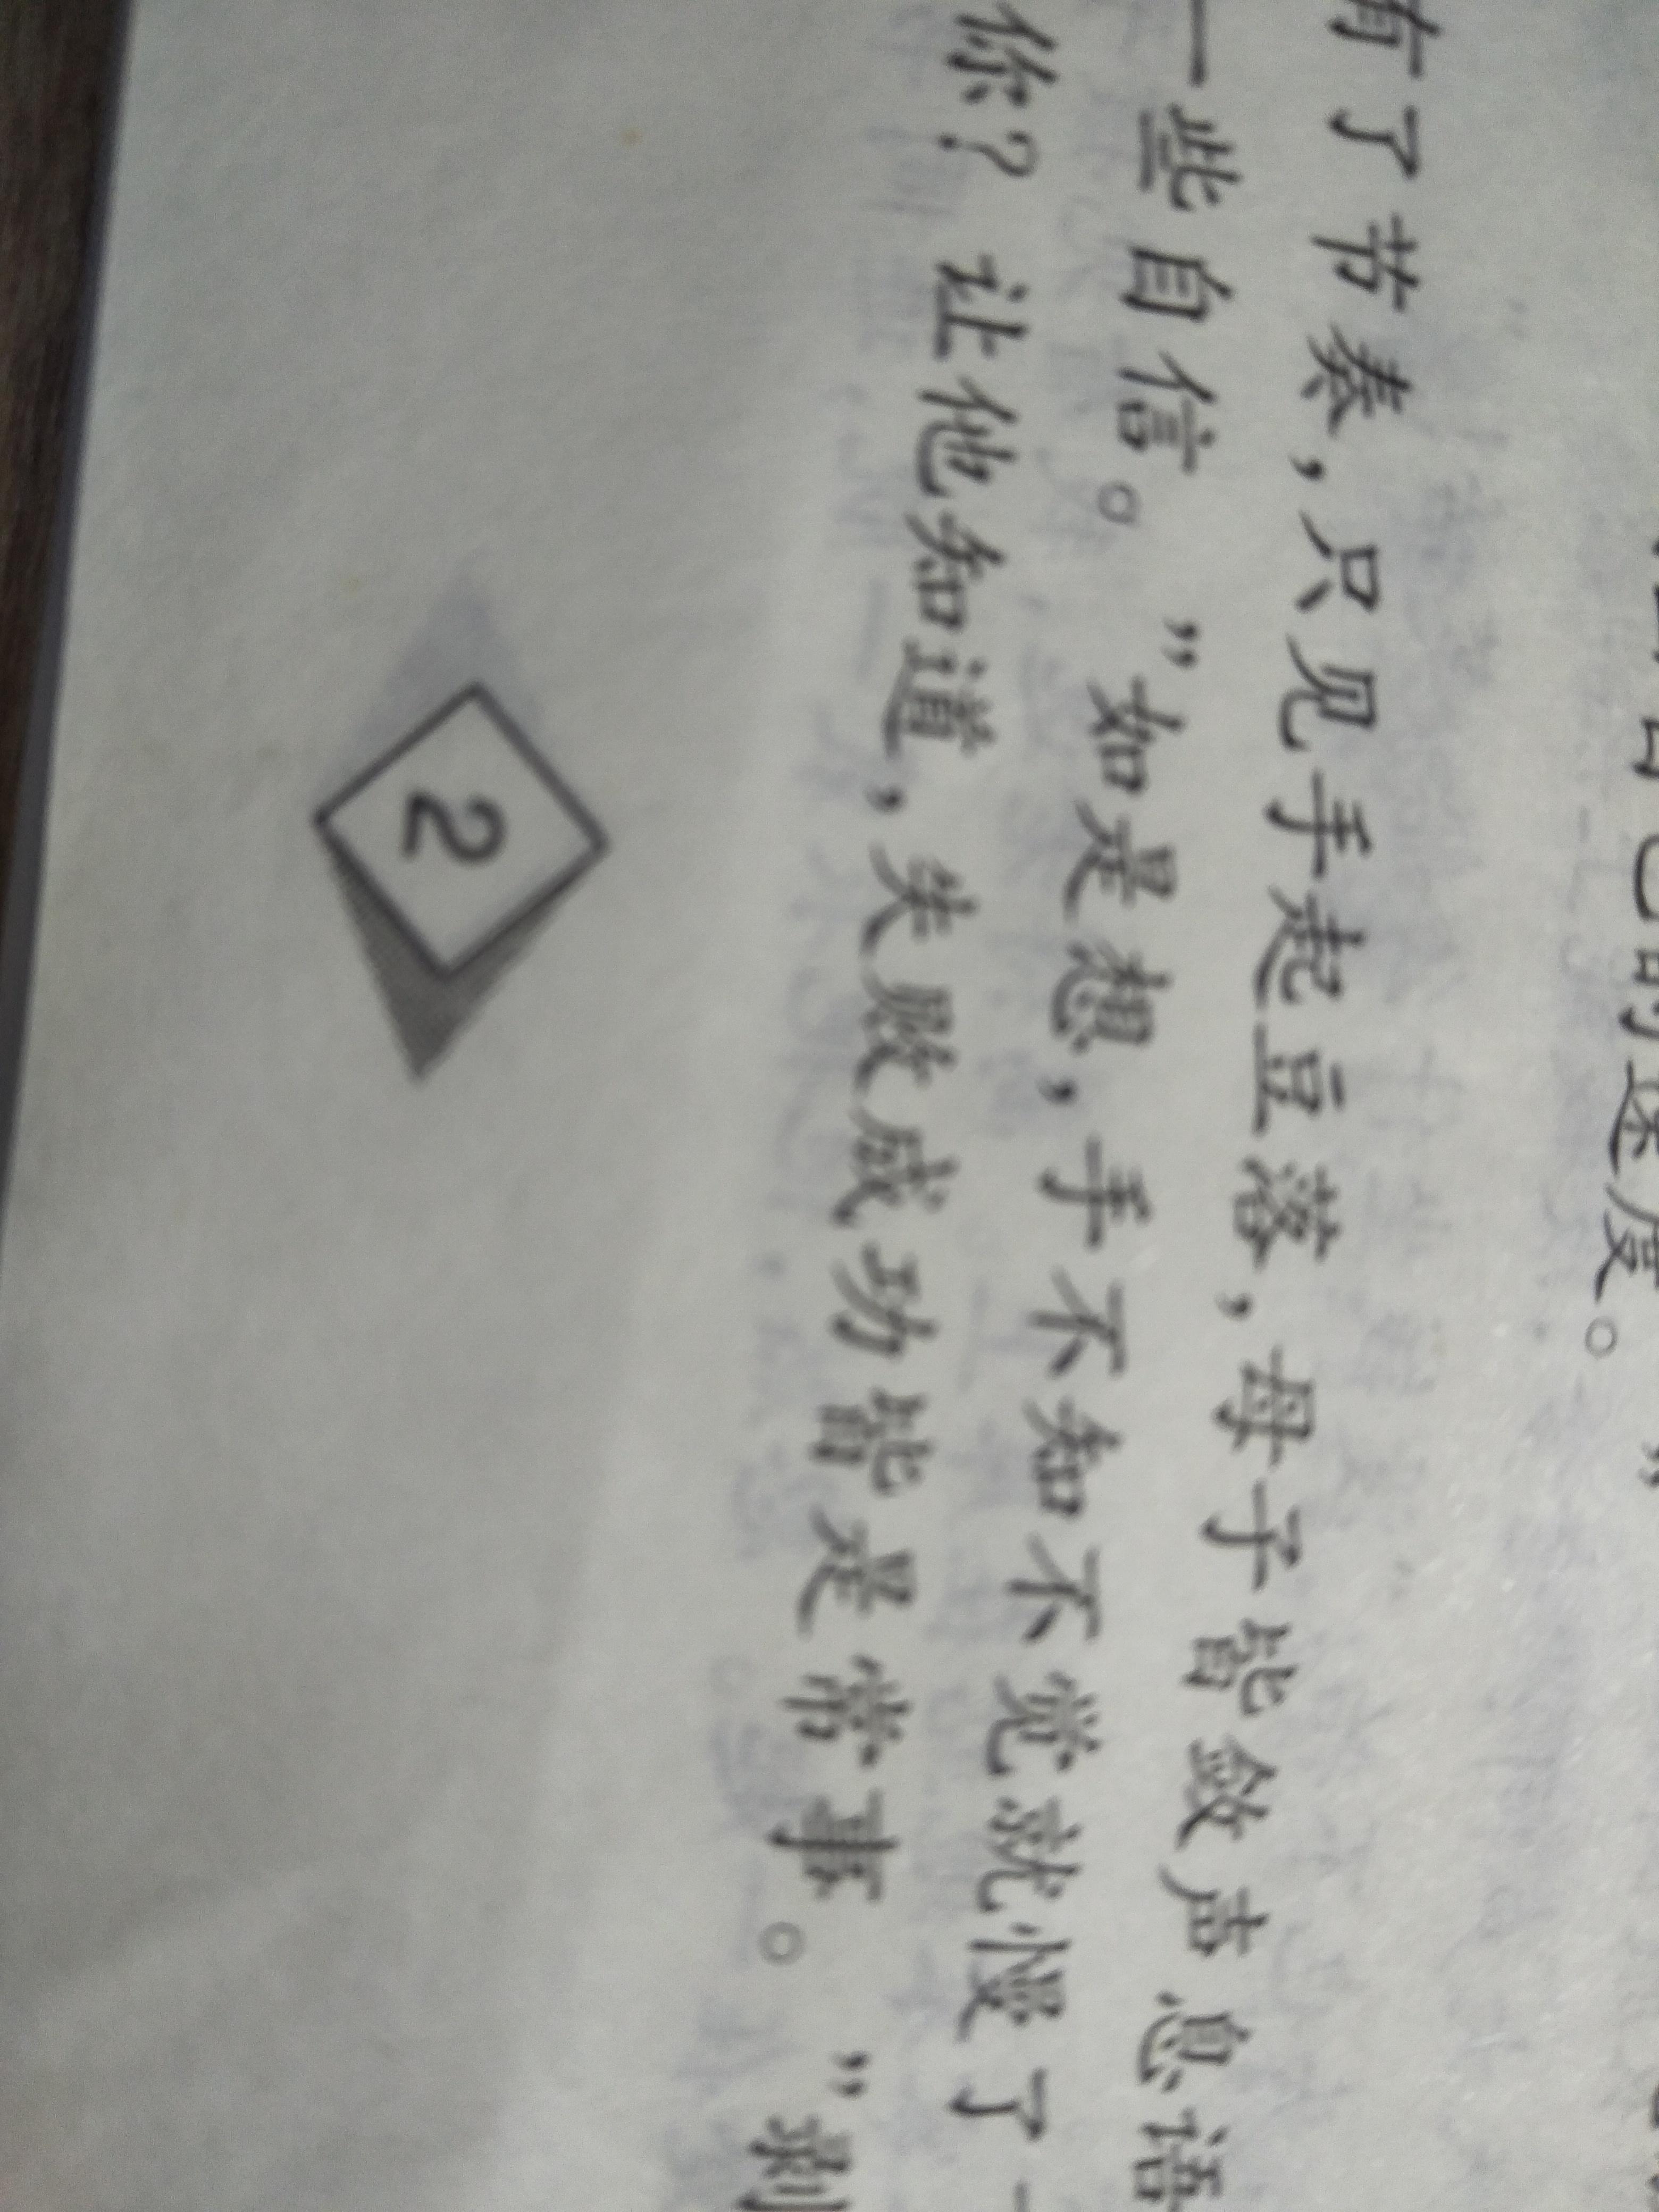 自己的速度。”
有了节奏,只见手起豆落,母子皆敛声息语
一些自信。”如是想,手不知不觉就慢了一
你?让他知道,失败成功皆是常事。”剥
2